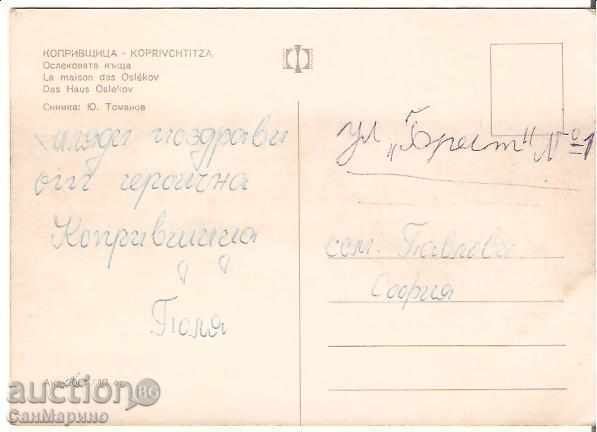 КОПРИВЩИЦА - KOPRIVCHTITZA
Ослековата къща
La maison das Oslékov
Das Haus Oslekov
Снимка: Ю. Томанов
поздрави
от героична
Копривщица
Поля
ул „Брест" № 1
сем. Павлови
София
auction BG
СанМарино